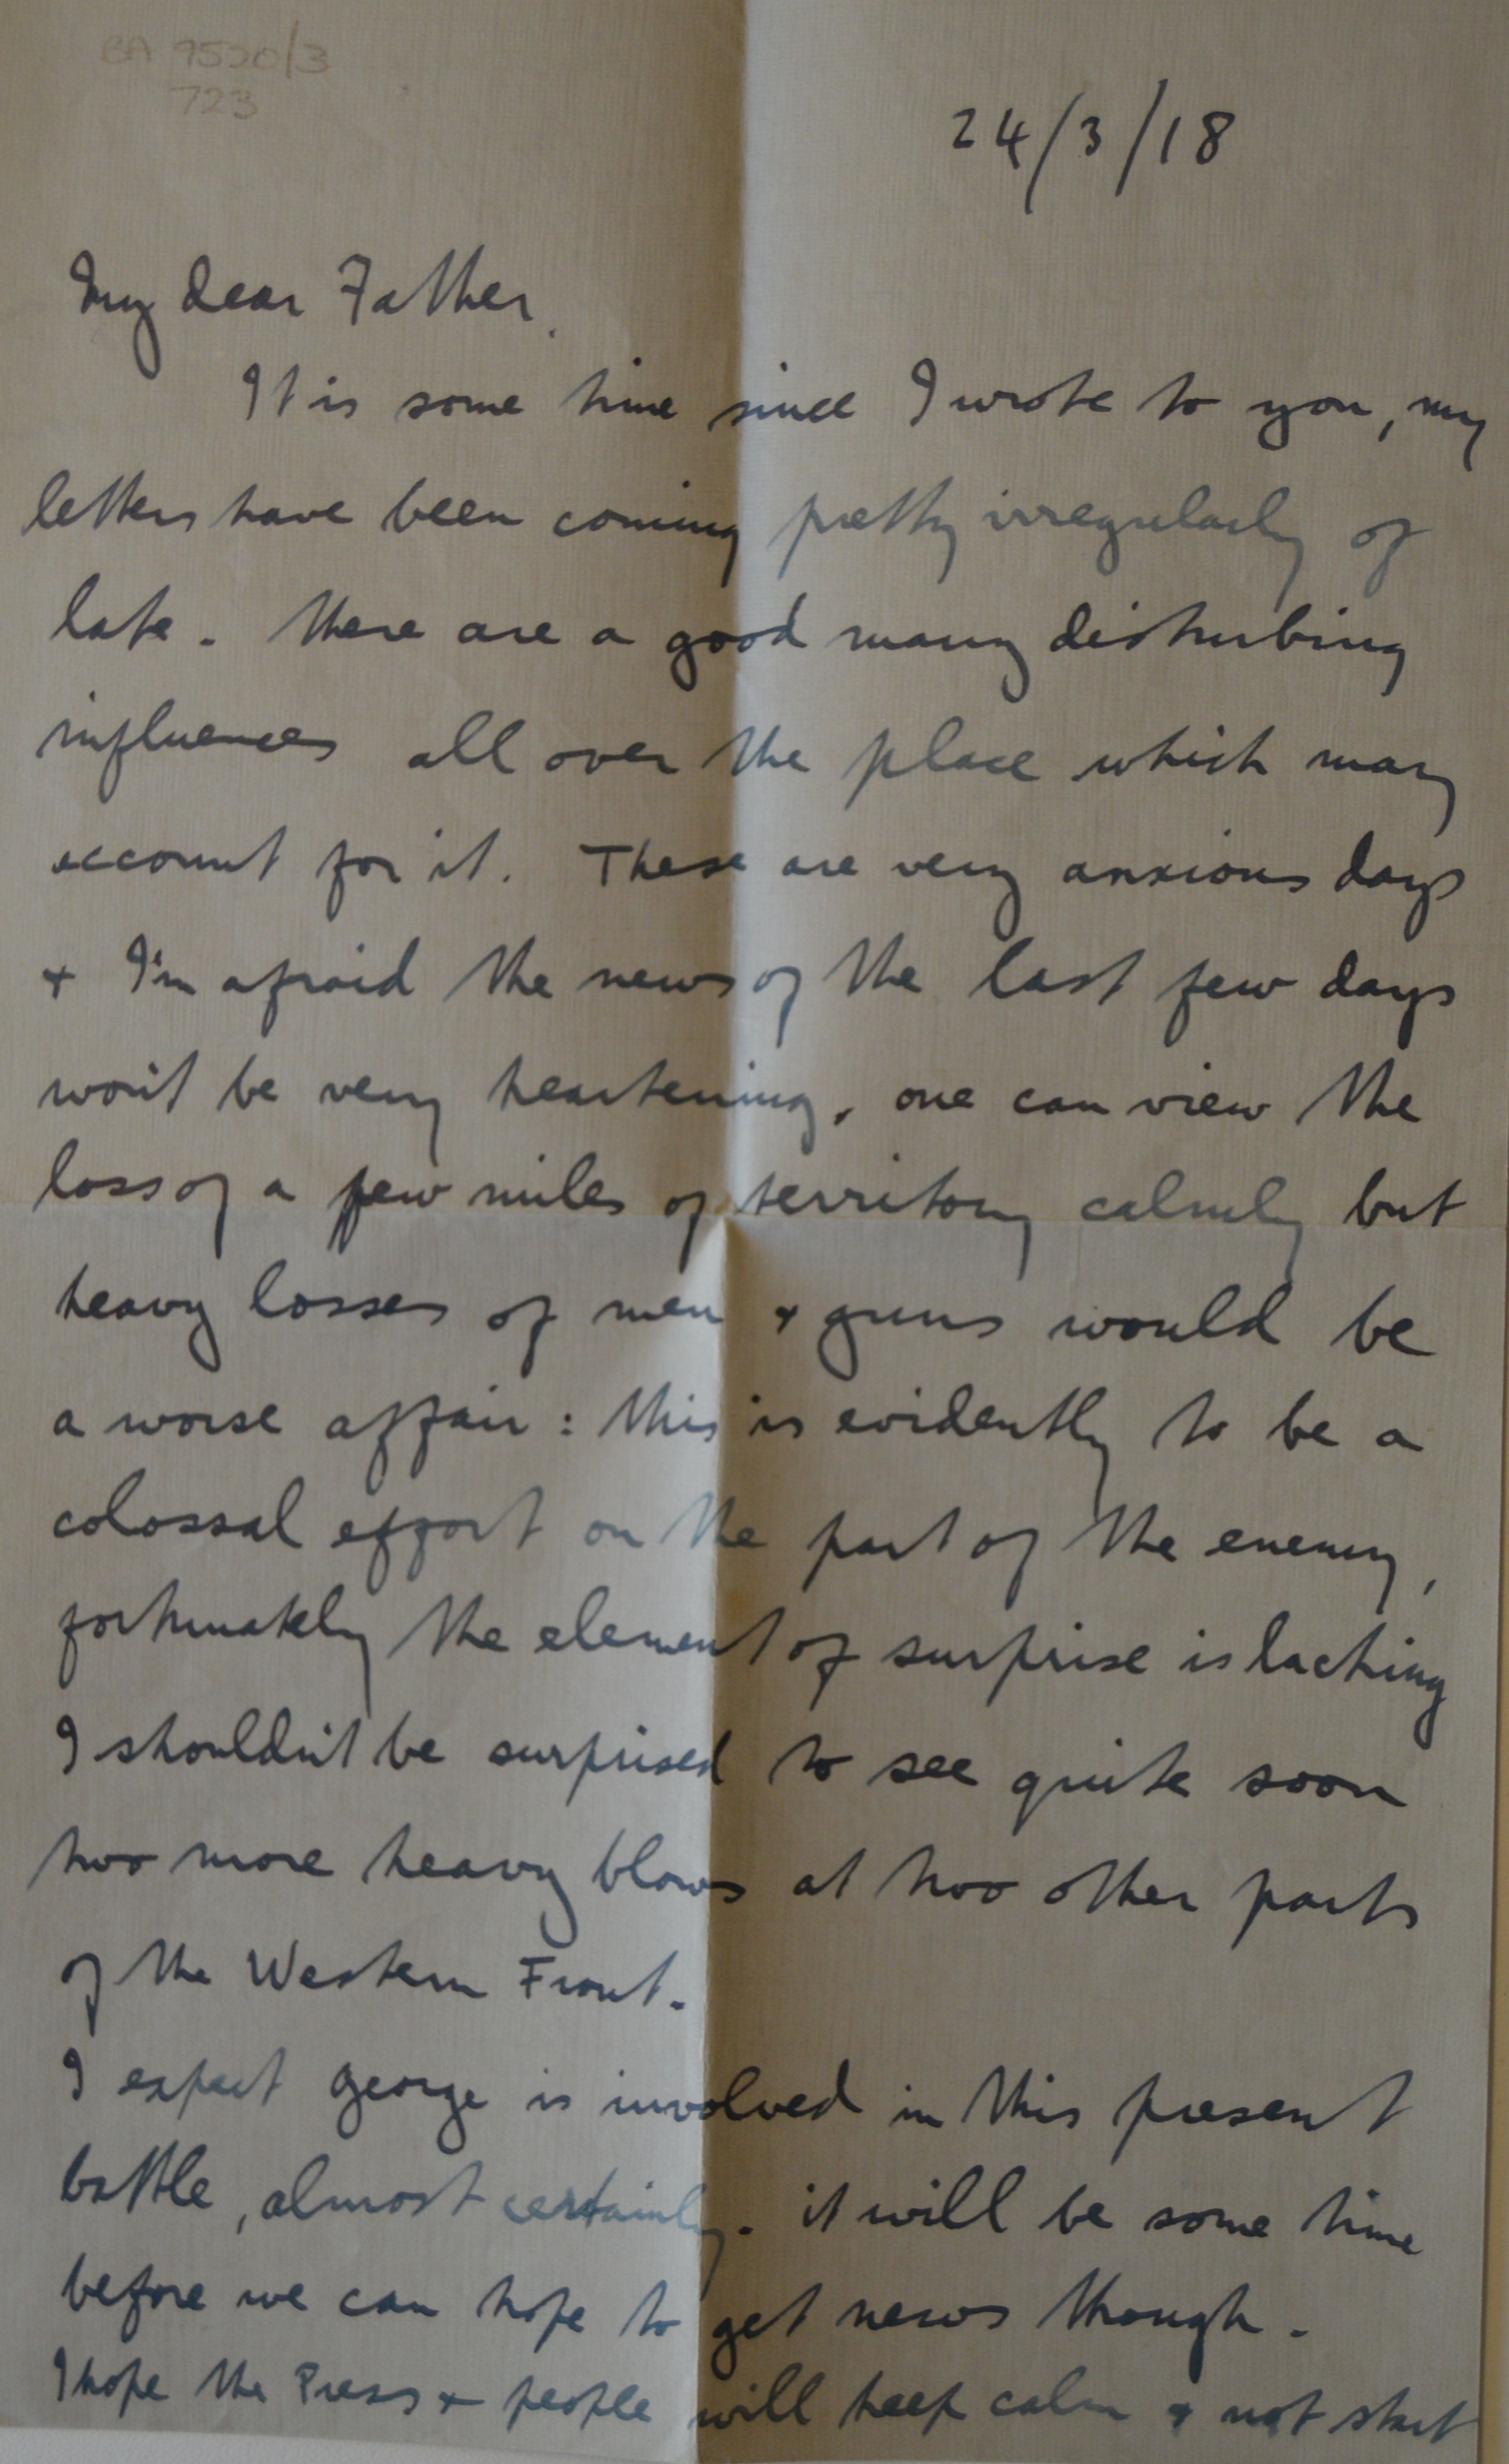 BA 9520/3
723
24/3/18
My dear Father.
It is some time since I wrote to you, my
letters have been coming pretty irregularly of
late. There are a good many disturbing
influences all over the place which may
account for it. These are very anxious days
+ I'm afraid the news of the last few days
won't be very heartening, one can view the
loss of a few miles of territory calmly but
heavy losses of men + guns would be
a worse affair: this is evidently to be a
colossal effort on the part of the enemy,
fortunately the element of surprise is lacking
I shouldn't be surprised to see quite soon
two more heavy blows at two other parts
of the Western Front.
I expect George is involved in this present
battle, almost certainly. it will be some time
before we can hope to get news though.
I hope the Press + people will keep calm + not start